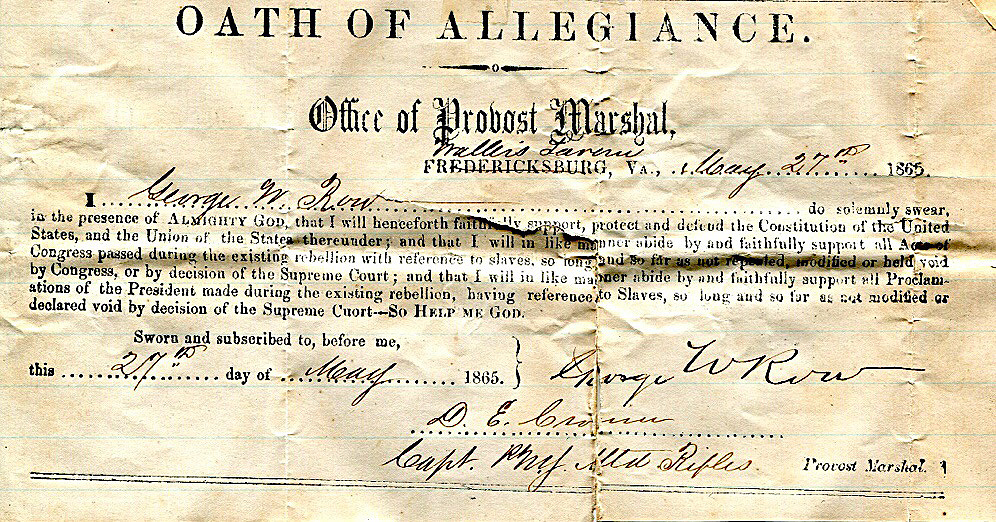 OATH OF ALLEGIANCE.
Office of Provost Marshal,
Tavern
FREDERICKSBURG, VA., May 27th 1865.
I George W. Row do solemnly swear,
in the presence of ALMIGHTY GOD, that I will henceforth faithfully support, protect and defend the Constitution of the United
States, and the Union of the States thereunder; and that I will in like manner abide by and faithfully support all Acts of
Congress passed during the existing rebellion with reference to slaves, so long and so far as not repealed, modified or held void
by Congress, or by decision of the Supreme Court; and that I will in like manner abide by and faithfully support all Proclam-
ations of the President made during the existing rebellion, having reference to Slaves, so long and so far as not modified or
declared void by decision of the Supreme Cuort—SO HELP ME GOD.
Sworn and subscribed to, before me,
this 27th day of May 1865. } George W Row
D. E.
Capt. Rifles. Provost Marshal.